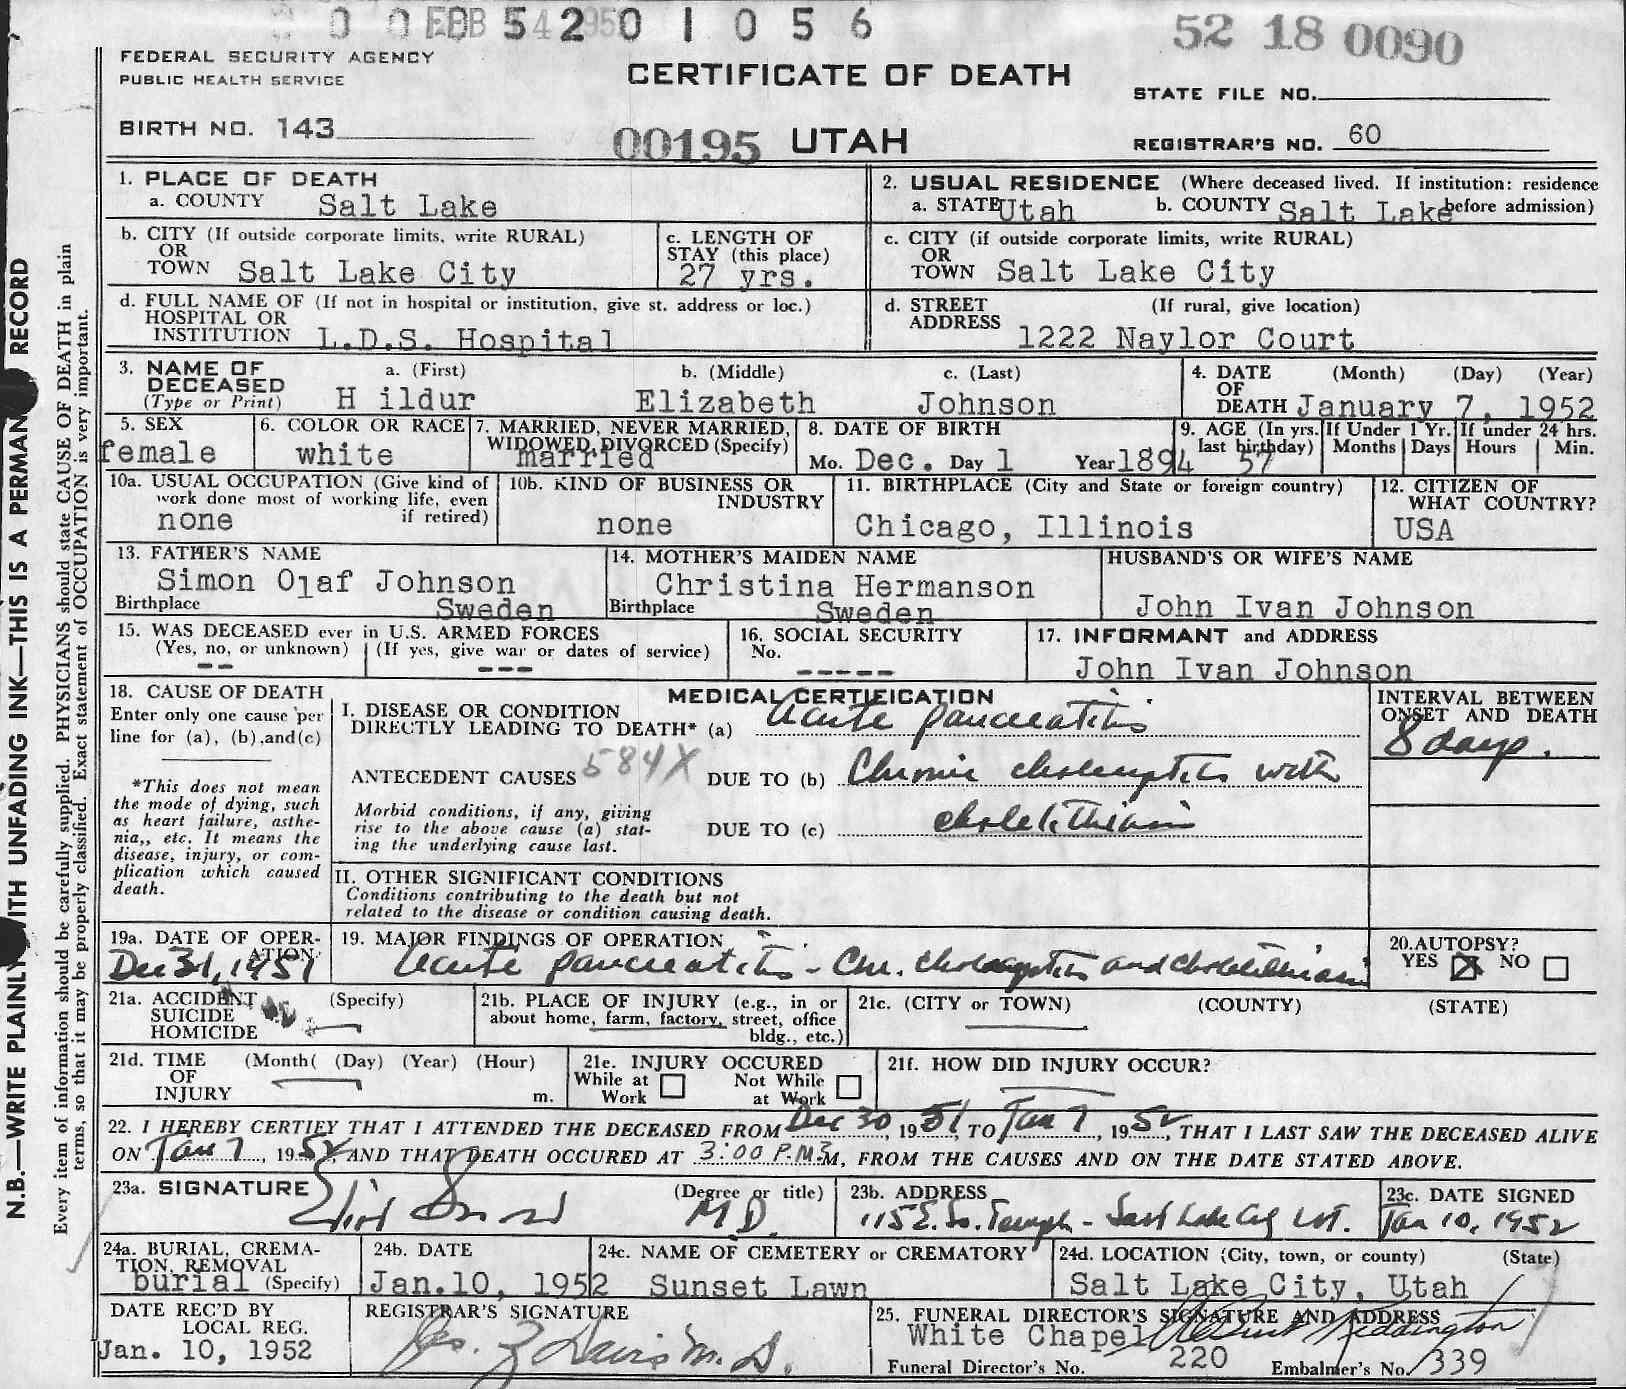 FEB 5 2 0 1 0 5 6
52 18 0090
FEDERAL SECURITY AGENCY
PUBLIC HEALTH SERVICE
CERTIFICATE OF DEATH
STATE FILE NO.
BIRTH NO. 143
00195 UTAH
REGISTRAR'S NO. 60
1. PLACE OF DEATH
a. COUNTY Salt Lake
2. USUAL RESIDENCE (Where deceased lived. If institution: residence before admission)
a. STATE Utah b. COUNTY Salt Lake
b. CITY (If outside corporate limits, write RURAL)
OR
TOWN Salt Lake City
c. LENGTH OF
STAY (this place)
27 yrs.
c. CITY (if outside corporate limits, write RURAL)
OR
TOWN Salt Lake City
d. FULL NAME OF (If not in hospital or institution, give st. address or loc.)
HOSPITAL OR
INSTITUTION L.D.S. Hospital
d. STREET (If rural, give location)
ADDRESS 1222 Naylor Court
3. NAME OF DECEASED
(Type or Print)
a. (First) b. (Middle) c. (Last)
H ildur Elizabeth Johnson
4. DATE OF DEATH (Month) (Day) (Year)
January 7, 1952
5. SEX
female
6. COLOR OR RACE
white
7. MARRIED, NEVER MARRIED,
WIDOWED, DIVORCED (Specify)
married
8. DATE OF BIRTH
Mo. Dec. Day 1 Year 1894
9. AGE (In yrs. last birthday)
57
If Under 1 Yr.
Months Days
If under 24 hrs.
Hours Min.
10a. USUAL OCCUPATION (Give kind of
work done most of working life, even
if retired)
none
10b. KIND OF BUSINESS OR
INDUSTRY
none
11. BIRTHPLACE (City and State or foreign country)
Chicago, Illinois
12. CITIZEN OF
WHAT COUNTRY?
USA
13. FATHER'S NAME
Simon Olaf Johnson
Birthplace Sweden
14. MOTHER'S MAIDEN NAME
Christina Hermanson
Birthplace Sweden
HUSBAND'S OR WIFE'S NAME
John Ivan Johnson
15. WAS DECEASED ever in U.S. ARMED FORCES
(Yes, no, or unknown) (If yes, give war or dates of service)
-- ---
16. SOCIAL SECURITY
No.
-----
17. INFORMANT and ADDRESS
John Ivan Johnson
18. CAUSE OF DEATH
Enter only one cause per
line for (a), (b), and (c)
*This does not mean
the mode of dying, such
as heart failure, asthe-
nia,, etc. It means the
disease, injury, or com-
plication which caused
death.
MEDICAL CERTIFICATION
I. DISEASE OR CONDITION
DIRECTLY LEADING TO DEATH* (a) Acute pancreatitis
ANTECEDENT CAUSES 584X DUE TO (b) Chronic cholecystitis with
Morbid conditions, if any, giving
rise to the above cause (a) stat-
ing the underlying cause last.
DUE TO (c) cholelithiasis
INTERVAL BETWEEN
ONSET AND DEATH
8 days.
II. OTHER SIGNIFICANT CONDITIONS
Conditions contributing to the death but not
related to the disease or condition causing death.
19a. DATE OF OPER-
ATION
Dec 31, 1951
19. MAJOR FINDINGS OF OPERATION
Acute pancreatitis - Chr. cholecystitis and cholelithiasis
20. AUTOPSY?
YES NO
21a. ACCIDENT (Specify)
SUICIDE
HOMICIDE
21b. PLACE OF INJURY (e.g., in or
about home, farm, factory, street, office
bldg., etc.)
21c. (CITY or TOWN) (COUNTY) (STATE)
21d. TIME (Month( (Day) (Year) (Hour)
OF
INJURY m.
21e. INJURY OCCURED
While at Work Not While at Work
21f. HOW DID INJURY OCCUR?
22. I HEREBY CERTIFY THAT I ATTENDED THE DECEASED FROM Dec 30, 1951, TO Jan 7, 1952, THAT I LAST SAW THE DECEASED ALIVE
ON Jan 7, 1952, AND THAT DEATH OCCURED AT 3:00 P.M. M, FROM THE CAUSES AND ON THE DATE STATED ABOVE.
23a. SIGNATURE (Degree or title)
M.D.
23b. ADDRESS
115 E. So. Temple - Salt Lake City Ut.
23c. DATE SIGNED
Jan 10, 1952
24a. BURIAL, CREMA-
TION, REMOVAL
burial (Specify)
24b. DATE
Jan. 10, 1952
24c. NAME OF CEMETERY or CREMATORY
Sunset Lawn
24d. LOCATION (City, town, or county) (State)
Salt Lake City, Utah
DATE REC'D BY
LOCAL REG.
Jan. 10, 1952
REGISTRAR'S SIGNATURE
Davis M.D.
25. FUNERAL DIRECTOR'S SIGNATURE AND ADDRESS
White Chapel
Funeral Director's No. 220 Embalmer's No. 339
N.B.—WRITE PLAINLY WITH UNFADING INK—THIS IS A PERMAN RECORD
Every item of information should be carefully supplied. PHYSICIANS should state CAUSE OF DEATH in plain
terms, so that it may be properly classified. Exact statement of OCCUPATION is very important.